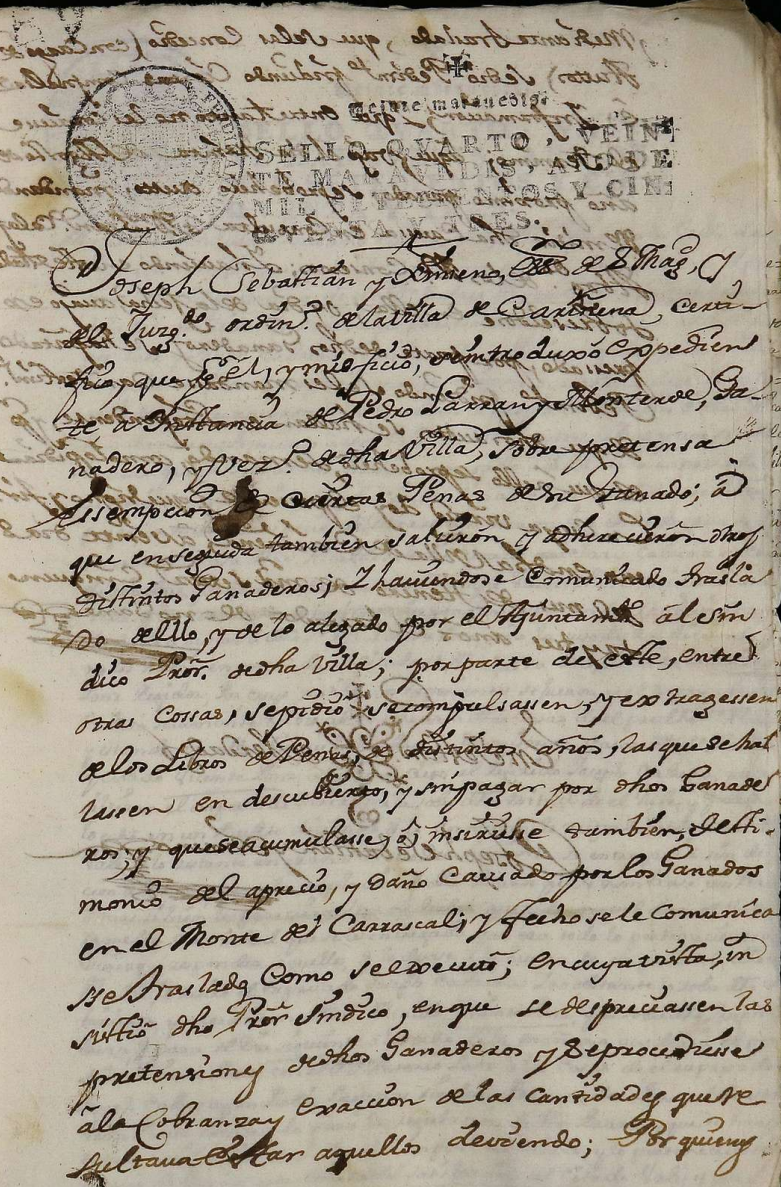 Veinte maravedis.
SELLO QVARTO, VEIN-
TE MARAVEDIS, AÑO DE
MIL SETECIENTOS Y CIN-
QVENTA Y TRES.
Joseph Sebastián y Ximeno, de S Mag.
del Juzg.do ordin.º de la villa de Cariñena, certi-
fico, que y mi oficio, se introduxo expedien
te a Instancia de Pedro Larran y Monterde, Ga-
nadero, y Vez.º de dha Villa, sobre pretensa
Essempcion de ciertas Penas de su Ganado; â
que enseguida tambien salieron y adhirieron otros
distintos Ganaderos; Y haviendose Comunicado trasla
do de ello, y de lo alegado por el Ayuntam.to âl sin
dico Pror. de dha Villa; por parte de este, entre
otras cossas, se pidió se compulsassen, y extragessen
de los Libros de Penas, de distintos años, las que se hal
lassen en descubierto, y sin pagar por dhos Ganade
ros; y que se acumulasse, ô insiriesse tambien, Testi-
monio del aprecio, y daño Causado por los Ganados
en el Monte del Carrascal; y fecho se le Comunica
sse traslado Como se executó; en cuya vista, in
sistió dho Pror Sindico, en que se despreciassen las
pretensiones de dhos Ganaderos y se procediesse
â la Cobranza y exaccion de las cantidades que re
sultava estar aquellos deviendo; Por quienes